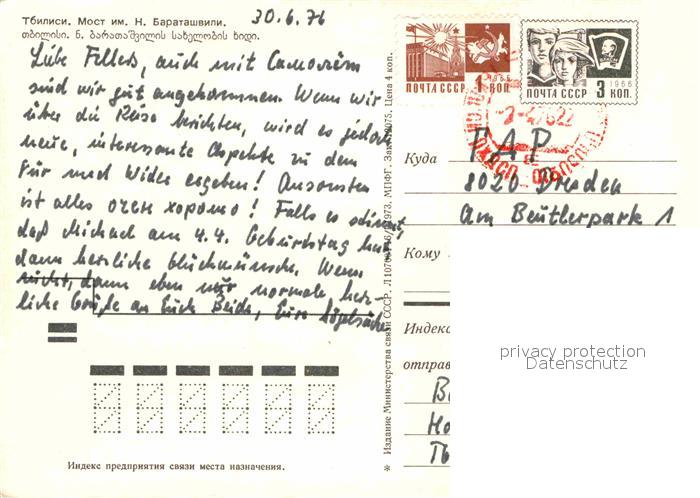 Тбилиси. Мост им. Н. Бараташвили.
თბილისი. ნ. ბარათაშვილის სახელობის ხიდი.
30.6.76
Liebe Filleks, auch mit Самолётом
sind wir gut angekommen. Wenn wir
über die Reise berichten, wird es jedoch
neue, interessante Aspekte zu dem
Für und Wider ergeben! Ansonsten
ist alles очень хорошо! Falls es stimmt,
daß Michael am 4.4. Geburtstag hat,
dann herzliche Glückwünsche. Wenn
nicht, dann eben nur normale herz-
liche Grüße an Euch Beide, Eure
Индекс предприятия связи места назначения.
Издание Министерства связи СССР.
1973. МПФГ. Цена 4 коп.
ПОЧТА СССР
1 КОП.
1966
ПОЧТА СССР
1966
3 КОП.
Куда ГДР
8020 Dresden
Am Beutlerpark 1
Кому
Индекс
отправ
Тб
privacy protection
Datenschutz